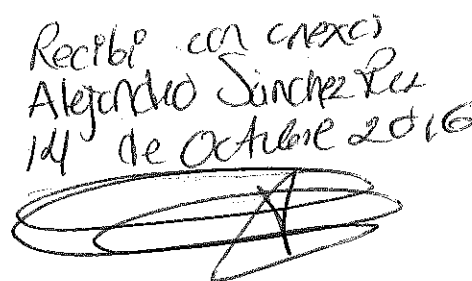 Recibi con anexo
Alejandro Sánchez
14 de Octubre 2016